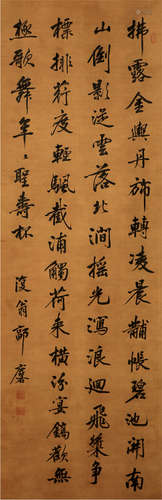 拂露金輿丹旆轉凌晨黼帳碧池開南
山倒影從雲落北澗搖光瀉浪迴飛槳爭
標排荇度輕颿截浦觸荷來橫汾宴鎬歡無
極歌舞年〻聖壽杯